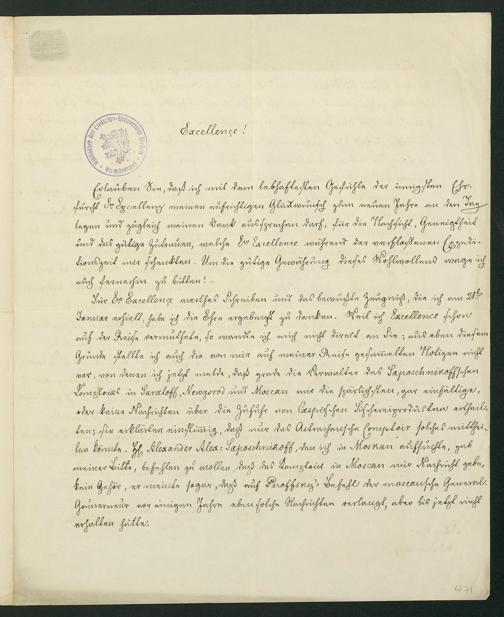 Excellence!
Erlauben Sie, daß ich mit dem lebhaftesten Gefühle der innigsten Ehr-
furcht Ew Excellenz meinen aufrichtigen Glückwunsch zum neuen Jahre an den Tag
legen und zugleich meinen Dank aussprechen darf, für die Nachsicht, Geneigtheit
und das gütige Zutrauen, welche Ew Excellence während der verfloßenen Expedi-
tionszeit mir schenkten. Um die gütige Gewährung dieses Wohlwollens wage ich
auch fernerhin zu bitten! –
Für Ew Excellence werthes Schreiben und das bewußte Zeugniß, die ich am
Januar erhielt, habe ich die Ehre ergebenst zu danken. Weil ich Excellence schon
auf der Reise vermuthete, so wandte ich mich nicht direct an Sie; aus eben diesem
Grunde stellte ich auch die von mir auf meiner Reise gesammelten Notizen nicht
vor, von denen ich jetzt melde, daß grade die Verwalter des Saposchnikoffschen
Comptoirs in Saratoff, Novgorod und Moscau mir die spärlichsten, gar einfältige,
oder keine Nachrichten über die Zufuhr von Caspischen Fischereiproducten ertheil-
ten; sie erklärten einstimmig, daß nur das Astrachansche Comptoir solches mitthei-
len könnte. Hr Alexander Alex: Saposchnikoff, den ich in Moskau aufsuchte, gab
meiner Bitte, befehlen zu wollen, daß das Comptoir in Moscau mir Nachricht gebe,
kein Gehör, er meinte sogar, daß auf Befehl der moscausche General-
Gouverneur vor einigen Jahren ebensolche Nachrichten verlangt, aber bis jetzt nicht
erhalten hätte.
471